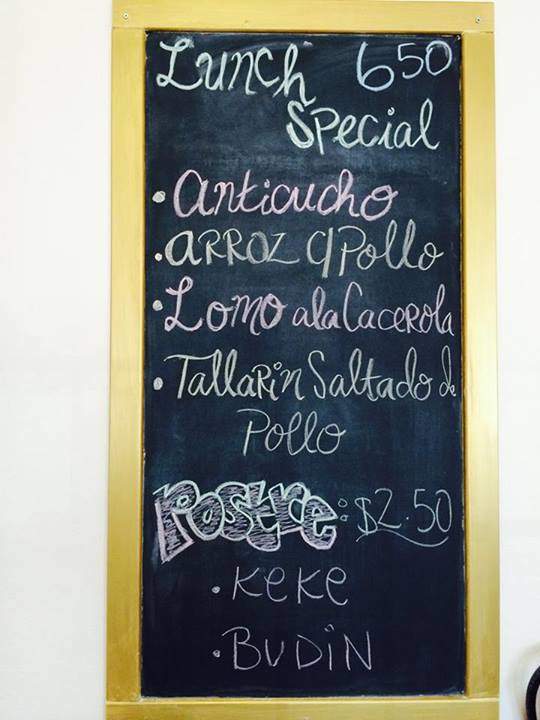 Lunch 650
Special
• Anticucho
• ARROZ c/Pollo
• Lomo a la Cacerola
• Tallarin Saltado de
Pollo
Postre: $2.50
• KeKe
• BUDIN